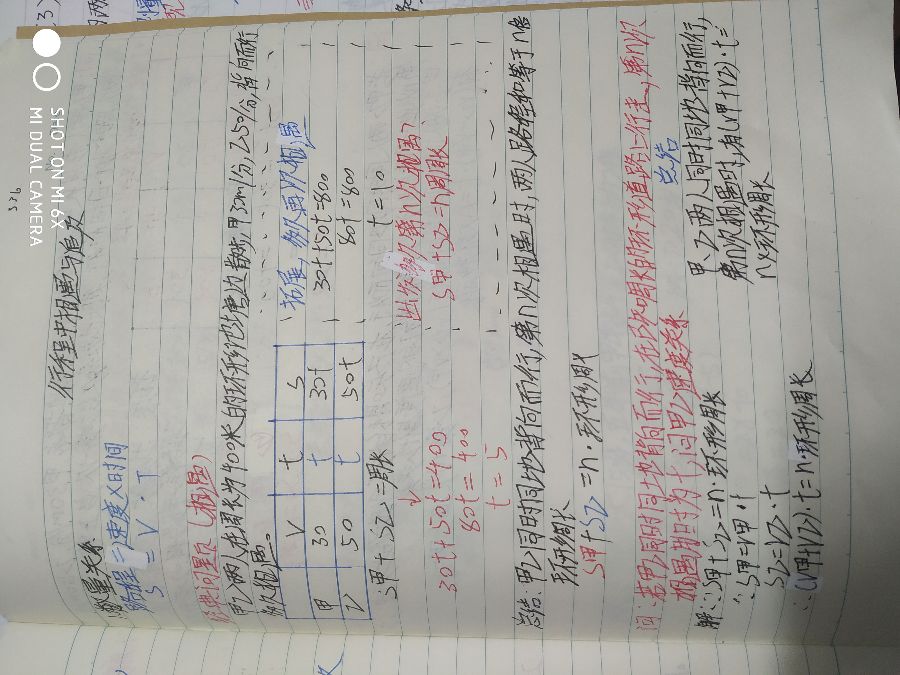 行程中相遇与追及
数量关系
路程=速度×时间
S = V · T
经典问题(相遇)
甲乙两人在周长为400米的环形跑步, 甲30m/分, 乙50/分, 背向而行
多久相遇。
V t S
甲 30 t 30t
乙 50 t 50t
S甲+S乙=周长
30t+50t=400
80t=400
t=5
拓展, 多久再次相遇
30t+50t=800
80t=800
t=10
出发多久第n次相遇?
S甲+S乙=n周长
总结: 甲乙同时同地背向而行, 第n次相遇时, 两人路程和等于n倍
环形周长
S甲+S乙=n·环形周长
问: 若甲乙同时同地背向而行, 在环形道路上行走, 第n次
相遇用时为t, 问甲乙速度关系
解: ∵S甲+S乙=n·环形周长
∵S甲=V甲·t
S乙=V乙·t
∴(V甲+V乙)·t=n·环形周长
总结
甲、乙两人同时同地背向而行,
第n次相遇时, 有(V甲+V乙)·t=
n×环形周长
SHOT ON MI 6X
MI DUAL CAMERA